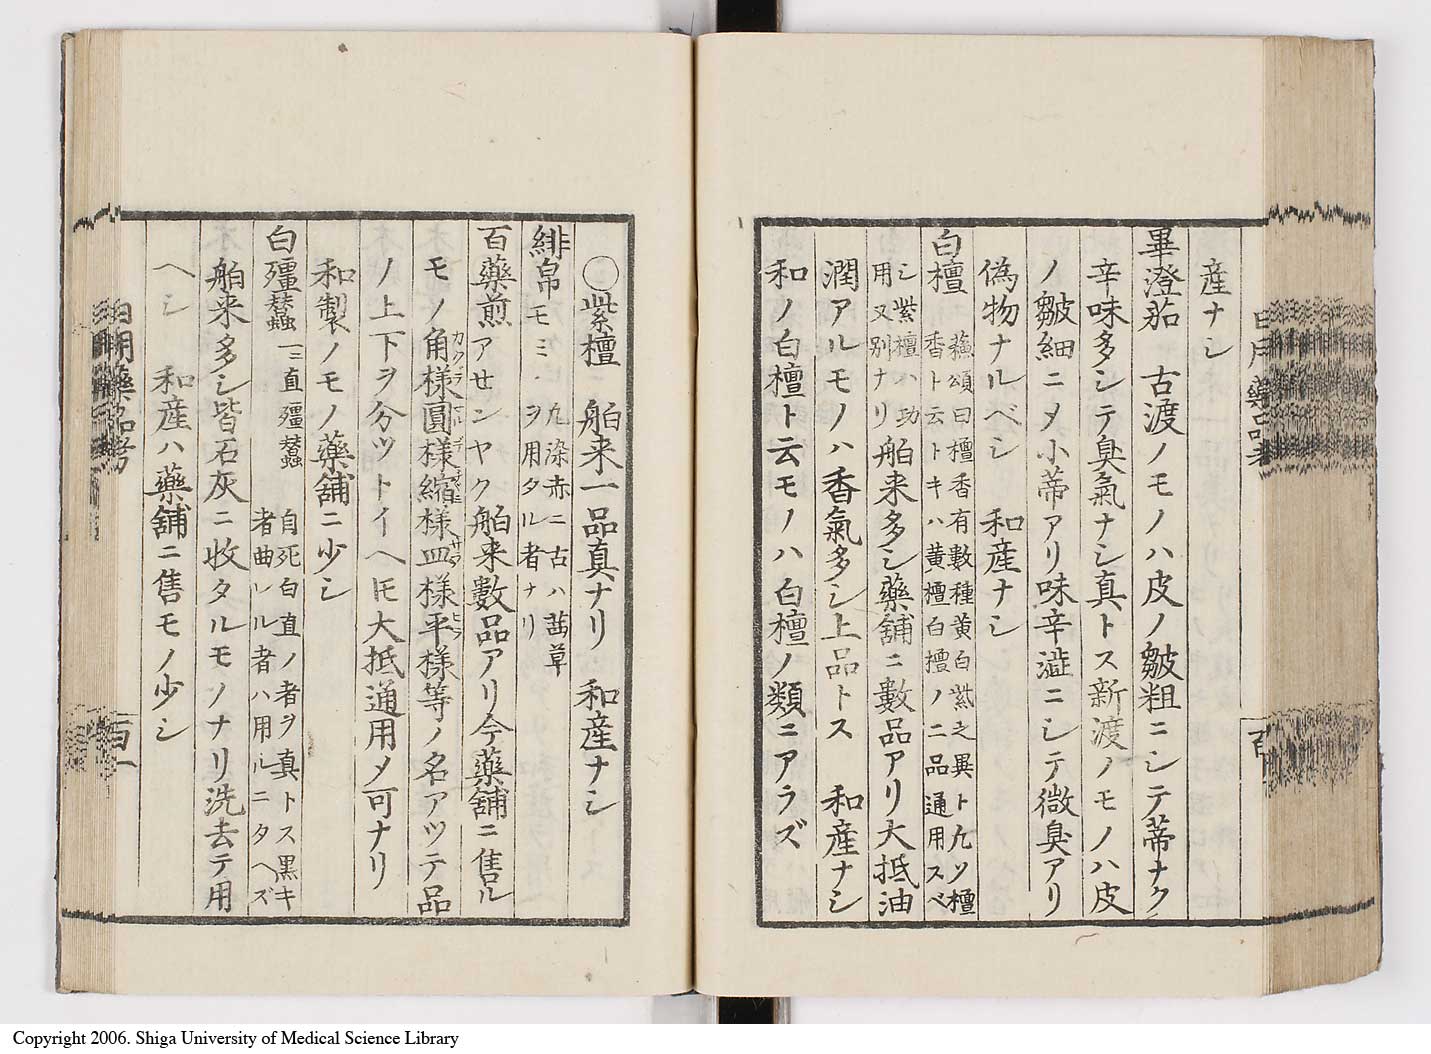 産ナシ
畢澄茄　古渡ノモノハ皮ノ皺粗ニシテ蒂ナク
辛味多シテ臭氣ナシ真トス新渡ノモノハ皮
ノ皺細ニメ小蒂アリ味辛澁ニシテ微臭アリ
偽物ナルベシ　和産ナシ
白檀　蘓頌曰檀香有數種黄白紫之異ト九ソ檀
香ト云トキハ黄檀白檀ノ二品通用スベ
シ紫檀ハ功
用又別ナリ
舶来多シ藥舗ニ數品アリ大抵油
潤アルモノハ香氣多シ上品トス　和産ナシ
和ノ白檀ト云モノハ白檀ノ類ニアラズ
〇紫檀　舶来一品真ナリ　和産ナシ
緋帛モミ、九染赤ニ古ハ茜草
ヲ用タル者ナリ
百藥煎アせンヤク舶来數品アリ今藥舗ニ售ル
モノ角様圓様縮様皿様平様等ノ名アツテ品
ノ上下ヲ分ツトイヘ𪜈大抵通用メ可ナリ
和製ノモノ藥舗ニ少シ
白殭蠶一ニ直殭蠶　自死白直ノ者ヲ真トス黒キ
者曲レル者ハ用ルニタヘズ
舶来多シ皆石灰ニ收タルモノナリ洗去テ用
ヘシ　和産ハ藥舗ニ售モノ少シ
日用藥品考
百一
Copyright 2006. Shiga University of Medical Science Library